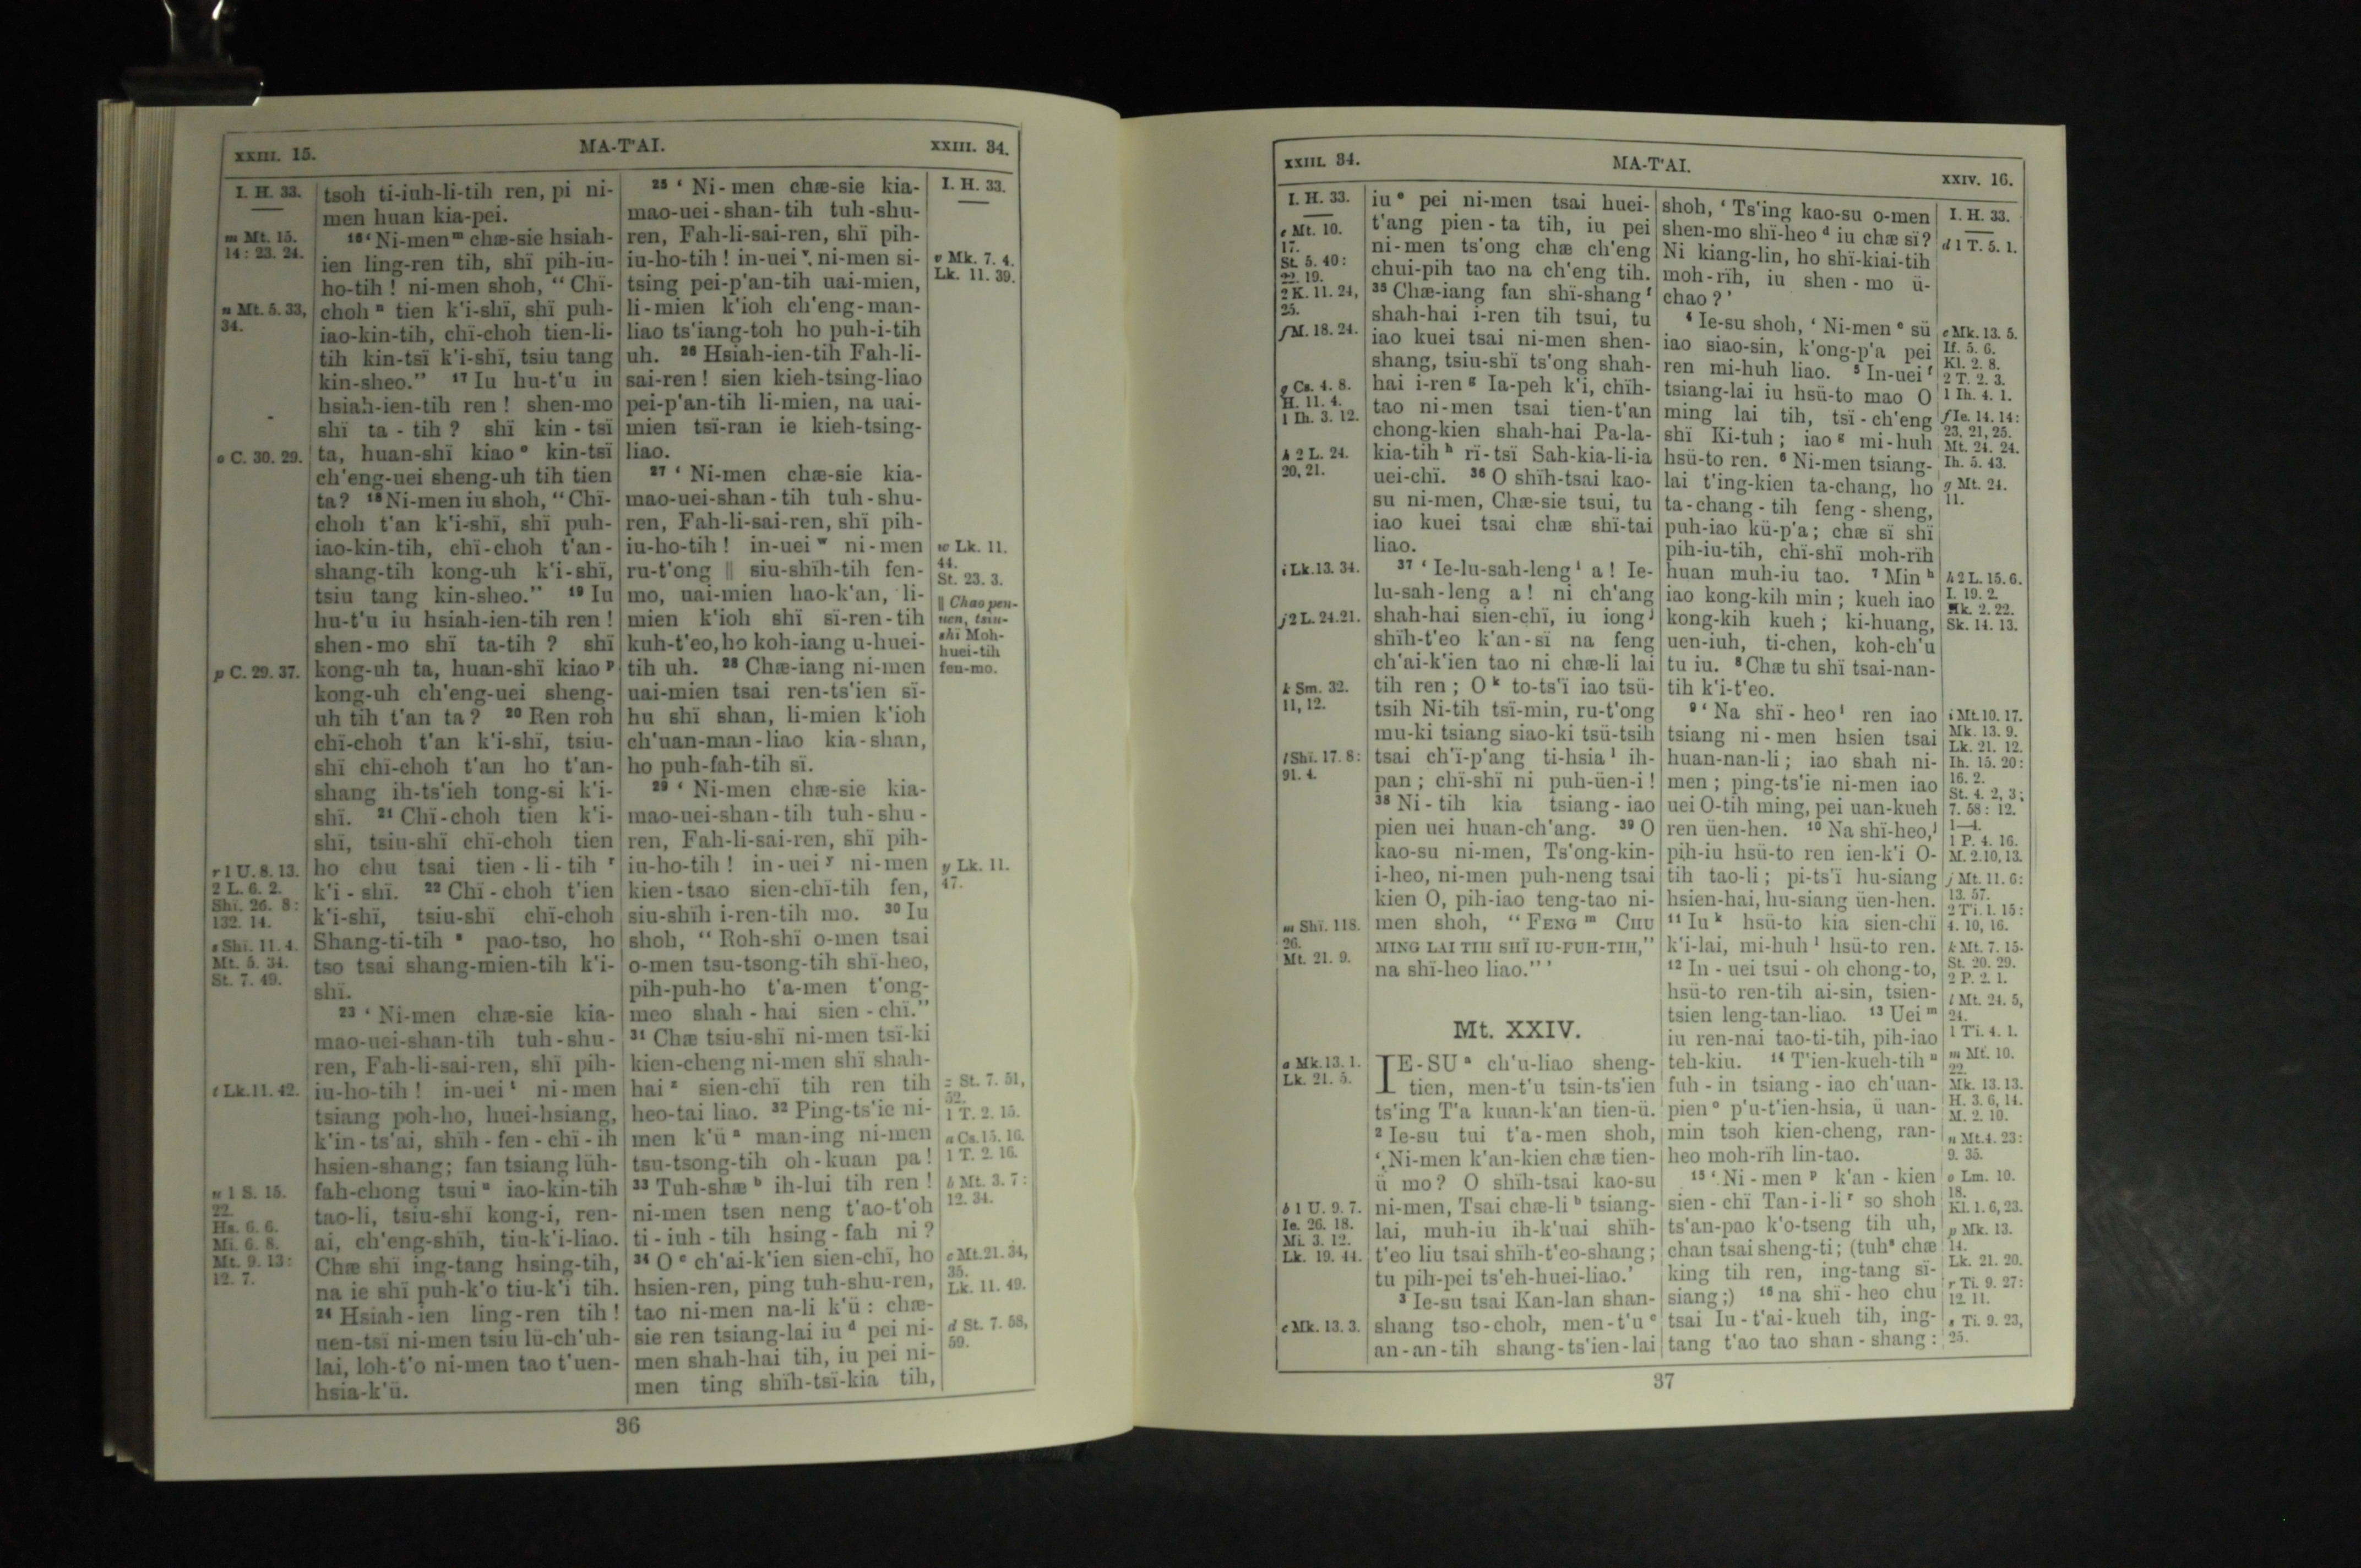 XXIII. 15.
MA-T'AI.
XXIII. 34.
I. H. 33.
m Mt. 15.
14: 23. 24.
n Mt. 5. 33,
34.
o C. 30. 29.
p C. 29. 37.
r 1 U. 8. 13.
2 L. 6. 2.
Shï. 26. 8:
132. 14.
s Shï. 11. 4.
Mt. 5. 34.
St. 7. 49.
t Lk. 11. 42.
u 1 S. 15.
22.
Hs. 6. 6.
Mi. 6. 8.
Mt. 9. 13:
12. 7.
tsoh ti-iuh-li-tih ren, pi ni-
men huan kia-pei.
16 ‘ Ni-men m chæ-sie hsiah-
ien ling-ren tih, shï pih-iu-
ho-tih ! ni-men shoh, “ Chï-
choh n tien k'i-shï, shï puh-
iao-kin-tih, chï-choh tien-li-
tih kin-tsï k'i-shï, tsiu tang
kin-sheo.” 17 Iu hu-t'u iu
hsiah-ien-tih ren ! shen-mo
shï ta - tih ? shï kin - tsï
ta, huan-shï kiao o kin-tsï
ch'eng-uei sheng-uh tih tien
ta? 18 Ni-men iu shoh, “ Chï-
choh t'an k'i-shï, shï puh-
iao-kin-tih, chï-choh t'an-
shang-tih kong-uh k'i-shï,
tsiu tang kin-sheo.” 19 Iu
hu-t'u iu hsiah-ien-tih ren !
shen-mo shï ta-tih ? shï
kong-uh ta, huan-shï kiao p
kong-uh ch'eng-uei sheng-
uh tih t'an ta ? 20 Ren roh
chï-choh t'an k'i-shï, tsiu-
shï chï-choh t'an ho t'an-
shang ih-ts'ieh tong-si k'i-
shï. 21 Chï-choh tien k'i-
shï, tsiu-shï chï-choh tien
ho chu tsai tien - li - tih r
k'i - shï. 22 Chï - choh t'ien
k'i-shï, tsiu-shï chï-choh
Shang-ti-tih s pao-tso, ho
tso tsai shang-mien-tih k'i-
shï.
23 ‘ Ni-men chæ-sie kia-
mao-uei-shan-tih tuh - shu -
ren, Fah-li-sai-ren, shï pih-
iu-ho-tih ! in-uei t ni-men
tsiang poh-ho, huei-hsiang,
k'in - ts'ai, shïh - fen - chï - ih
hsien-shang; fan tsiang lüh-
fah-chong tsui u iao-kin-tih
tao-li, tsiu-shï kong-i, ren-
ai, ch'eng-shïh, tiu-k'i-liao.
Chæ shï ing-tang hsing-tih,
na ie shï puh-k'o tiu-k'i tih.
24 Hsiah-ien ling-ren tih !
uen-tsï ni-men tsiu lü-ch'uh-
lai, loh-t'o ni-men tao t'uen-
hsia-k'ü.
25 ‘ Ni-men chæ-sie kia-
mao-uei-shan-tih tuh-shu-
ren, Fah-li-sai-ren, shï pih-
iu-ho-tih ! in-uei v ni-men si-
tsing pei-p'an-tih uai-mien,
li-mien k'ioh ch'eng-man-
liao ts'iang-toh ho puh-i-tih
uh. 26 Hsiah-ien-tih Fah-li-
sai-ren ! sien kieh-tsing-liao
pei-p'an-tih li-mien, na uai-
mien tsï-ran ie kieh-tsing-
liao.
27 ‘ Ni-men chæ-sie kia-
mao-uei-shan-tih tuh-shu-
ren, Fah-li-sai-ren, shï pih-
iu-ho-tih ! in-uei w ni-men
ru-t'ong ‖ siu-shïh-tih fen-
mo, uai-mien hao-k'an, li-
mien k'ioh shï sï-ren-tih
kuh-t'eo, ho koh-iang u-huei-
tih uh. 28 Chæ-iang ni-men
uai-mien tsai ren-ts'ien sï-
hu shï shan, li-mien k'ioh
ch'uan-man-liao kia-shan,
ho puh-fah-tih sï.
29 ‘ Ni-men chæ-sie kia-
mao-uei-shan-tih tuh-shu-
ren, Fah-li-sai-ren, shï pih-
iu-ho-tih ! in-uei y ni-men
kien-tsao sien-chï-tih fen,
siu-shïh i-ren-tih mo. 30 Iu
shoh, “ Roh-shï o-men tsai
o-men tsu-tsong-tih shï-heo,
pih-puh-ho t'a-men t'ong-
meo shah - hai sien - chï.”
31 Chæ tsiu-shï ni-men tsï-ki
kien-cheng ni-men shï shah-
hai z sien-chï tih ren tih
heo-tai liao. 32 Ping-ts'ie ni-
men k'ü a man-ing ni-men
tsu-tsong-tih oh-kuan pa !
33 Tuh-shæ b ih-lui tih ren !
ni-men tsen neng t'ao-t'oh
ti - iuh - tih hsing - fah ni ?
34 O c ch'ai-k'ien sien-chï, ho
hsien-ren, ping tuh-shu-ren,
tao ni-men na-li k'ü: chæ-
sie ren tsiang-lai iu d pei ni-
men shah-hai tih, iu pei ni-
men ting shïh-tsï-kia tih,
I. H. 33.
v Mk. 7. 4.
Lk. 11. 39.
w Lk. 11.
44.
St. 23. 3.
‖ Chao pen-
uen, tsiu-
shï Moh-
huei-tih
fen-mo.
y Lk. 11.
47.
z St. 7. 51,
52.
1 T. 2. 15.
a Cs. 15. 16.
1 T. 2. 16.
b Mt. 3. 7:
12. 34.
c Mt. 21. 34,
35.
Lk. 11. 49.
d St. 7. 58,
59.
36
XXIII. 34.
MA-T'AI.
XXIV. 16.
I. H. 33.
e Mt. 10.
17.
St. 5. 40:
22. 19.
2 K. 11. 24,
25.
f M. 18. 24.
g Cs. 4. 8.
H. 11. 4.
1 Ih. 3. 12.
h 2 L. 24.
20, 21.
i Lk. 13. 34.
j 2 L. 24. 21.
k Sm. 32.
11, 12.
l Shï. 17. 8:
91. 4.
m Shï. 118.
26.
Mt. 21. 9.
a Mk. 13. 1.
Lk. 21. 5.
b 1 U. 9. 7.
Ie. 26. 18.
Mi. 3. 12.
Lk. 19. 44.
c Mk. 13. 3.
iu e pei ni-men tsai huei-
t'ang pien-ta tih, iu pei
ni-men ts'ong chæ ch'eng
chui-pih tao na ch'eng tih.
35 Chæ-iang fan shï-shang f
shah-hai i-ren tih tsui, tu
iao kuei tsai ni-men shen-
shang, tsiu-shï ts'ong shah-
hai i-ren g Ia-peh k'i, chïh-
tao ni-men tsai tien-t'an
chong-kien shah-hai Pa-la-
kia-tih h rï-tsï Sah-kia-li-ia
uei-chï. 36 O shïh-tsai kao-
su ni-men, Chæ-sie tsui, tu
iao kuei tsai chæ shï-tai
liao.
37 ‘ Ie-lu-sah-leng i a ! Ie-
lu-sah-leng a ! ni ch'ang
shah-hai sien-chï, iu iong j
shïh-t'eo k'an-sï na feng
ch'ai-k'ien tao ni chæ-li lai
tih ren ; O k to-ts'ï iao tsü-
tsih Ni-tih tsï-min, ru-t'ong
mu-ki tsiang siao-ki tsü-tsih
tsai ch'ï-p'ang ti-hsia l ih-
pan ; chï-shï ni puh-üen-i !
38 Ni - tih kia tsiang - iao
pien uei huan-ch'ang. 39 O
kao-su ni-men, Ts'ong-kin-
i-heo, ni-men puh-neng tsai
kien O, pih-iao teng-tao ni-
men shoh, “ FENG m CHU
MING LAI TIH SHÏ IU-FUH-TIH,”
na shï-heo liao.” ’
Mt. XXIV.
IE-SU a ch'u-liao sheng-
tien, men-t'u tsin-ts'ien
ts'ing T'a kuan-k'an tien-ü.
2 Ie-su tui t'a-men shoh,
‘ Ni-men k'an-kien chæ tien-
ü mo? O shïh-tsai kao-su
ni-men, Tsai chæ-li b tsiang-
lai, muh-iu ih-k'uai shïh-
t'eo liu tsai shïh-t'eo-shang ;
tu pih-pei ts'eh-huei-liao.’
3 Ie-su tsai Kan-lan shan-
shang tso-choh, men-t'u c
an-an-tih shang-ts'ien-lai
shoh, ‘ Ts'ing kao-su o-men
shen-mo shï-heo d iu chæ sï?
Ni kiang-lin, ho shï-kiai-tih
moh-rïh, iu shen - mo ü-
chao ? ’
4 Ie-su shoh, ‘ Ni-men e sü
iao siao-sin, k'ong-p'a pei
ren mi-huh liao. 5 In-uei f
tsiang-lai iu hsü-to mao O
ming lai tih, tsï - ch'eng
shï Ki-tuh ; iao g mi-huh
hsü-to ren. 6 Ni-men tsiang-
lai t'ing-kien ta-chang, ho
ta-chang-tih feng-sheng,
puh-iao kü-p'a; chæ sï shï
pih-iu-tih, chï-shï moh-rïh
huan muh-iu tao. 7 Min h
iao kong-kih min ; kueh iao
kong-kih kueh ; ki-huang,
uen-iuh, ti-chen, koh-ch'u
tu iu. 8 Chæ tu shï tsai-nan-
tih k'i-t'eo.
9 ‘ Na shï - heo i ren iao
tsiang ni - men hsien tsai
huan-nan-li ; iao shah ni-
men ; ping-ts'ie ni-men iao
uei O-tih ming, pei uan-kueh
ren üen-hen. 10 Na shï-heo, j
pih-iu hsü-to ren ien-k'i O-
tih tao-li ; pi-ts'ï hu-siang
hsien-hai, hu-siang üen-hen.
11 Iu k hsü-to kia sien-chï
k'i-lai, mi-huh l hsü-to ren.
12 In - uei tsui - oh chong-to,
hsü-to ren-tih ai-sin, tsien-
tsien leng-tan-liao. 13 Uei m
iu ren-nai tao-ti-tih, pih-iao
teh-kiu. 14 T'ien-kueh-tih n
fuh - in tsiang - iao ch'uan-
pien o p'u-t'ien-hsia, ü uan-
min tsoh kien-cheng, ran-
heo moh-rïh lin-tao.
15 ‘ Ni - men p k'an - kien
sien - chï Tan - i - li r so shoh
ts'an-pao k'o-tseng tih uh,
chan tsai sheng-ti; (tuh s chæ
king tih ren, ing-tang sï-
siang ;) 16 na shï - heo chu
tsai Iu-t'ai-kueh tih, ing-
tang t'ao tao shan - shang :
I. H. 33.
d 1 T. 5. 1.
e Mk. 13. 5.
If. 5. 6.
Kl. 2. 8.
2 T. 2. 3.
1 Ih. 4. 1.
f Ie. 14. 14:
23. 21, 25.
Mt. 24. 24.
Ih. 5. 43.
g Mt. 24.
11.
h 2 L. 15. 6.
I. 19. 2.
Hk. 2. 22.
Sk. 14. 13.
i Mt. 10. 17.
Mk. 13. 9.
Lk. 21. 12.
Ih. 15. 20:
16. 2.
St. 4. 2, 3:
7. 58: 12.
1—4.
1 P. 4. 16.
M. 2. 10, 13.
j Mt. 11. 6:
13. 57.
2 Ti. 1. 15:
4. 10, 16.
k Mt. 7. 15.
St. 20. 29.
2 P. 2. 1.
l Mt. 24. 5,
24.
1 Ti. 4. 1.
m Mt. 10.
22.
Mk. 13. 13.
H. 3. 6, 14.
M. 2. 10.
n Mt. 4. 23:
9. 35.
o Lm. 10.
18.
Kl. 1. 6, 23.
p Mk. 13.
14.
Lk. 21. 20.
r Ti. 9. 27:
12. 11.
s Ti. 9. 23,
25.
37